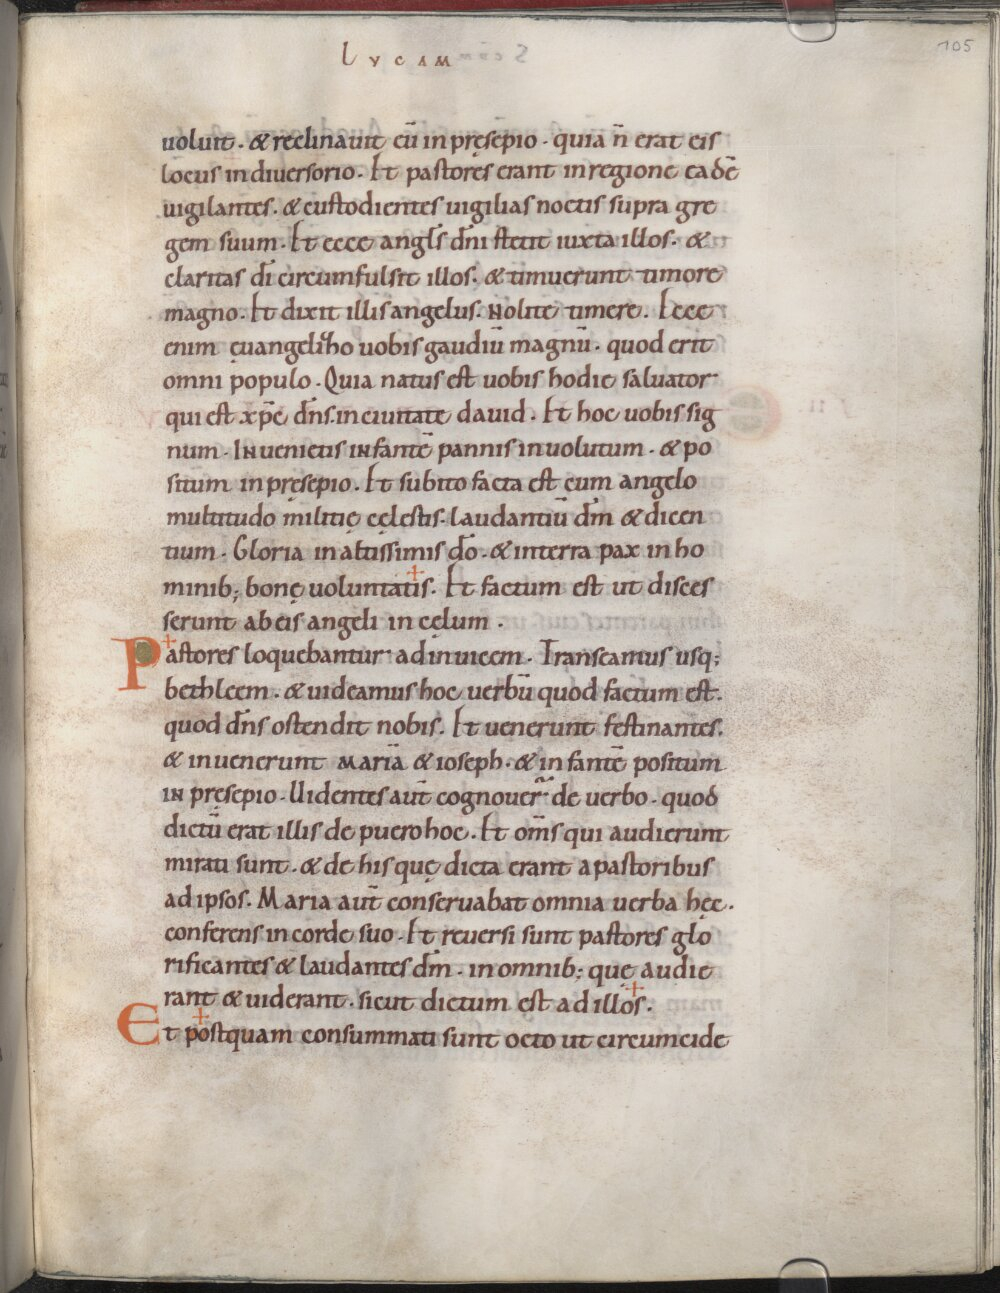 LVCAM
105
uoluit. & reclinauit eū in pręsepio. quia n̄ erat eis
locus in diuersorio. Et pastores erant in regione eadē
uigilantes. & custodientes uigilias noctis supra gre
gem suum. Et ecce angl̄s dn̄i stetit iuxta illos. &
claritas dī circumfulsit illos. & timuerunt timore
magno. Et dixit illis angelus. Nolite timere. Ecce
enim euangelizo uobis gaudiū magnū. quod erit
omni populo. Quia natus est uobis hodie saluator
qui est xp̄c dn̄s. in ciuitate dauid. Et hoc uobis sig
num. Inuenietis infantē pannis inuolutum. & po
situm in pręsepio. Et subito facta est cum angelo
multitudo militię cęlestis. laudantiū dm̄ & dicen
tium. Gloria in altissimis dō. & in terra pax in ho
minib; bonę uoluntatis. Et factum est ut disces
serunt ab eis angeli in cęlum.
Pastores loquebantur adinuicem. Transeamus usq;
bethleem. & uideamus hoc uerbū quod factum est.
quod dn̄s ostendit nobis. Et uenerunt festinantes.
& inuenerunt mariā & ioseph. & infantē positum
in pręsepio. Uidentes aut̄ cognouer̄ de uerbo. quod
dictū erat illis de puero hoc. Et om̄s qui audierunt
mirati sunt. & de his quę dicta erant a pastoribus
ad ipsos. Maria aut̄ conseruabat omnia uerba hęc.
conferens in corde suo. Et reuersi sunt pastores glo
rificantes & laudantes dm̄. in omnib; quę audie
rant & uiderant. sicut dictum est ad illos.
Et postquam consummati sunt octo ut circumcide